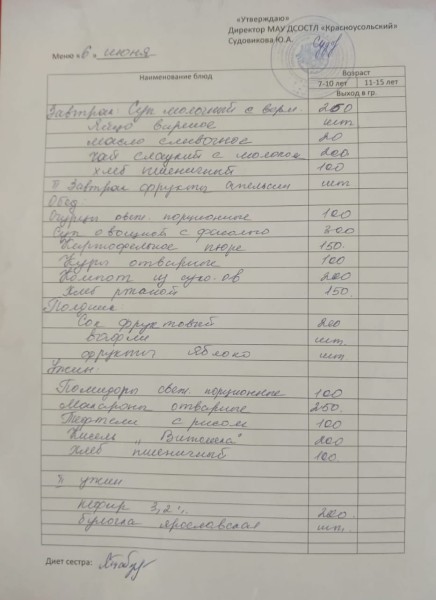 «Утверждаю»
Директор МАУ ДСОСТЛ «Красноусольский»
Судовикова Ю.А.
Меню « 6 » июня
Наименование блюд Возраст
7-10 лет 11-15 лет
Выход в гр.
Завтрак Суп молочный с верм. 250
Яйцо вареное шт
масло сливочное 20
чай сладкий с молоком 200
хлеб пшеничный 100
II Завтрак фрукты апельсин шт
Обед
Огурцы свеж. порционные 100
Суп овощной с фасолью 300
Картофельное пюре 150.
Куры отварные 100
Компот из сухо-ов 200
Хлеб ржаной 150.
Полдник
Сок фруктовый 200
вафли шт.
фрукты Яблоко шт
Ужин:
Помидоры свеж. порционные 100
Макароны отварные 250.
Тефтели с рисом 100
Кисель „Витошка" 200
Хлеб пшеничный 100.
II ужин
кефир 3,2%. 200.
булочка ярославская шт.
Диет сестра: